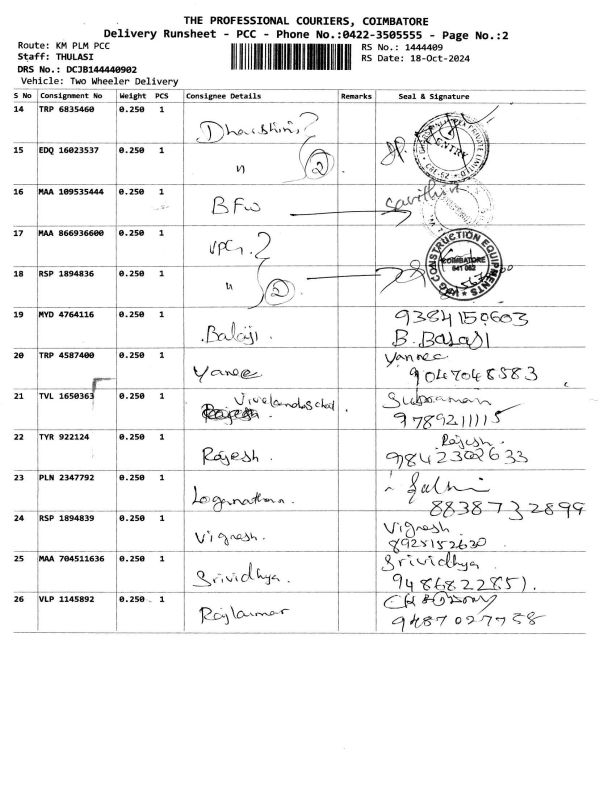 THE PROFESSIONAL COURIERS, COIMBATORE
Delivery Runsheet - PCC - Phone No.:0422-3505555 - Page No.:2
Route: KM PLM PCC RS No.: 1444409
Staff: THULASI RS Date: 18-Oct-2024
DRS No.: DCJB144440902
Vehicle: Two Wheeler Delivery
S No Consignment No Weight PCS Consignee Details Remarks Seal & Signature
14 TRP 6835460 0.250 1
15 EDQ 16023537 0.250 1 2
16 MAA 109535444 0.250 1 BFW
17 MAA 866936600 0.250 1 VPG
CONSTRUCTION EQUIPMENTS
COIMBATORE
18 RSP 1894836 0.250 1 2
19 MYD 4764116 0.250 1 Balaji. 9384150603
B. BALAJI
20 TRP 4587400 0.250 1 Yanee
9047048583
21 TVL 1650363 0.250 1
9789211115
22 TYR 922124 0.250 1 Rajesh. Rajesh.
9842302633
23 PLN 2347792 0.250 1 Loganathan.
8838732899
24 RSP 1894839 0.250 1 Vignesh. Vignesh.
8925152630
25 MAA 704511636 0.250 1 Srividhya. Srividhya
9486822851
26 VLP 1145892 0.250 1 Rajkumar
9487027758